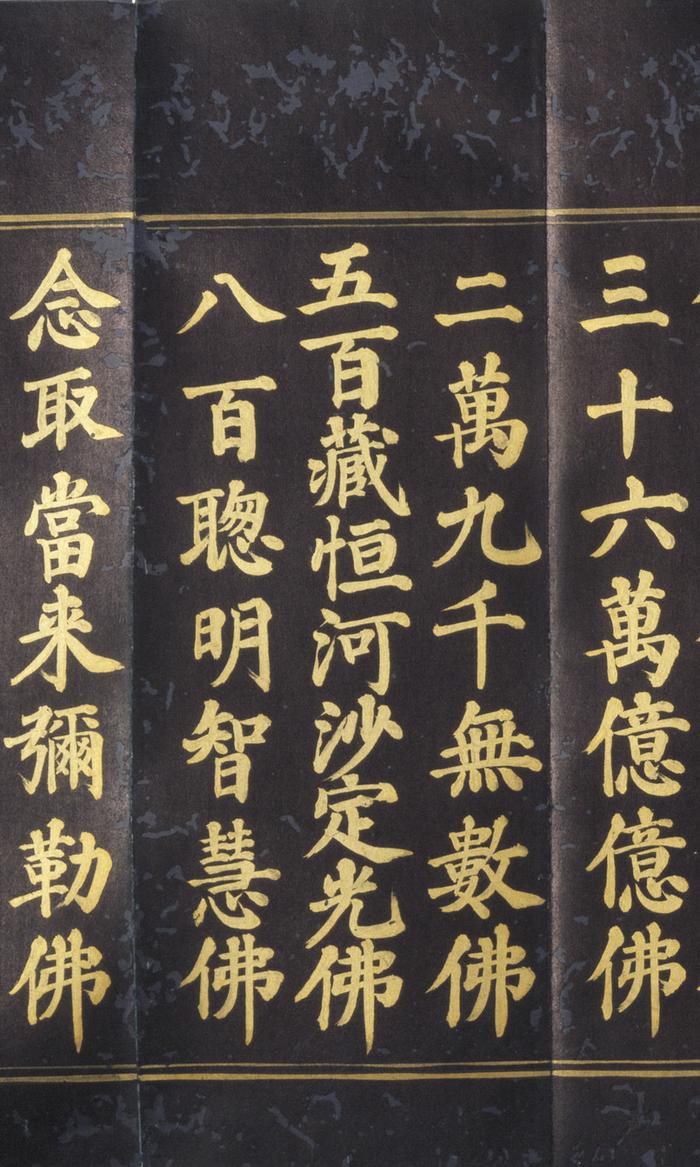 三十六萬億億佛
二萬九千無數佛
五百藏恒河沙定光佛
八百聰明智慧佛
念取當来彌勒佛